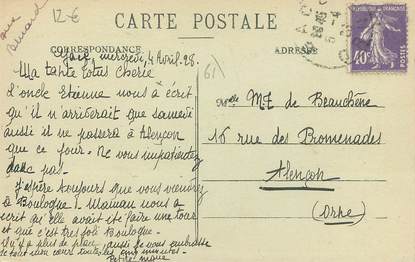 12-€
CARTE POSTALE
CORRESPONDANCE
ADRESSE
mercredi, 4 Avril. 28.
Ma tante Totus Chérie
d'oncle Etienne nous à écrit
qu'il n'arriverait que samedi
aussi il ne passera à Alençon
que ce jour. Ne vous impatientez
donc pas.
J'espère toujours que vous viendrez
à Boulogne! Maman nous a
écrit qu'elle avait été faire une tour
et que c'est très joli Boulogne.
Il n'y a plus de place, aussi je vous embrasse
de tout mon cœur toutes les cinq minutes.
Petite
61
Melle MT de Beauchêne
16 rue des Promenades
Alençon
(Orne)
40c